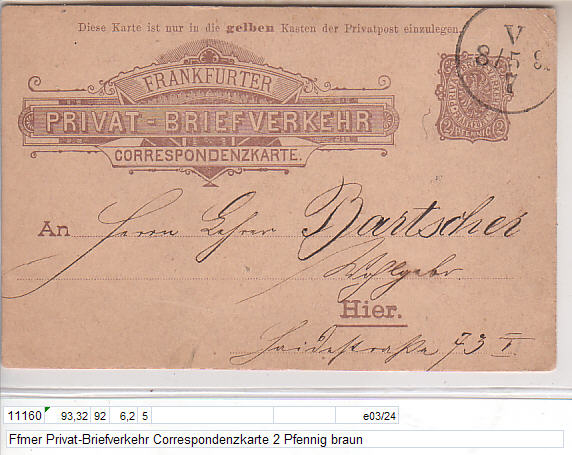 Diese Karte ist nur in die gelben Kasten der Privatpost einzulegen.
FRANKFURTER
PRIVAT-BRIEFVERKEHR
CORRESPONDENZKARTE.
2 PFENNIG 2
V
An Herrn Lehrer Bartscher
Wohlgebr.
Hier.
Haidestraße 73 I.
11160 93,32 92 6,2 5 e03/24
Ffmer Privat-Briefverkehr Correspondenzkarte 2 Pfennig braun